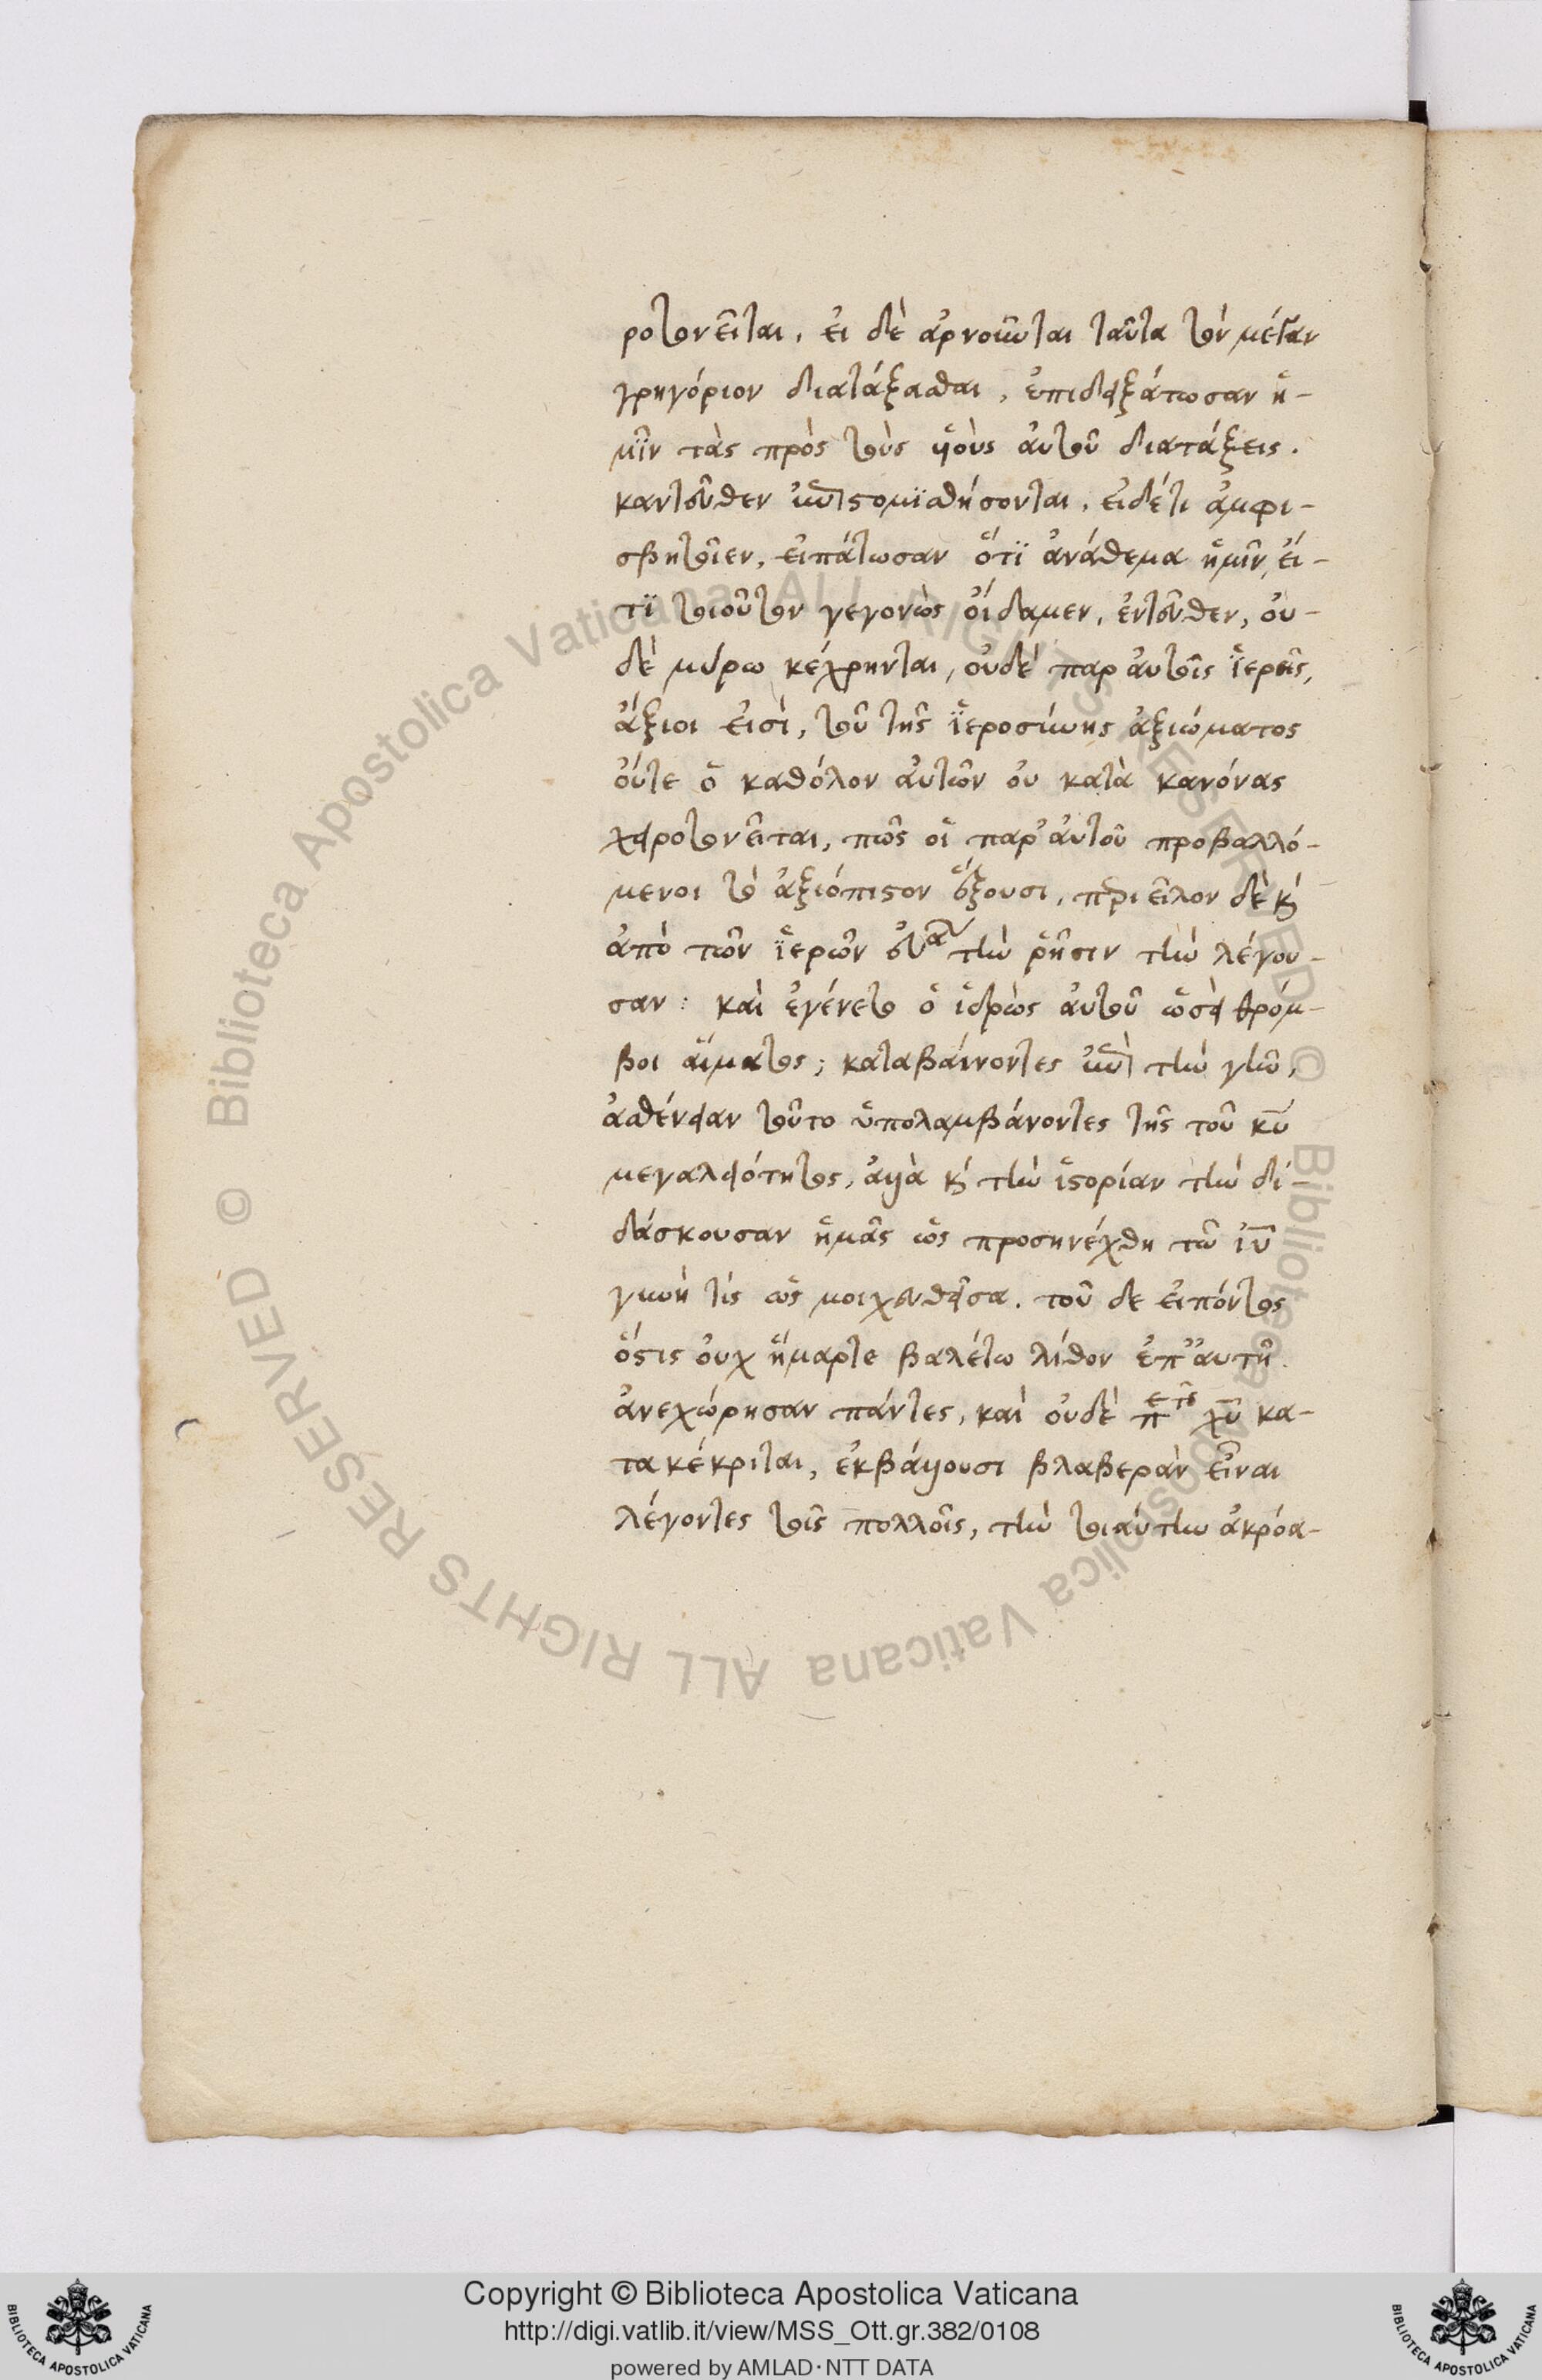 ροτονεῖται. εἰ δὲ ἀρνοιῶται ταῦτα τὸν μέγαν
γρηγόριον διατάξασθαι, ἐπιδειξάτωσαν ἡ-
μῖν τὰς πρὸς τοὺς ὅρους αὐτοῦ διατάξεις.
καντεῦθεν ἐπιστομϊσθήσονται. εἰδέτι ἀμφι-
σβητοῖεν, εἰπάτωσαν ὅτϊ ἀνάθεμα ἡμῖν, εἴ-
τϊ τοιοῦτον γεγονὼς οἴδαμεν. ἐντεῦθεν, οὐ-
δὲ μύρω κέχρηνται, οὐδὲ παρ αὐτοῖς ἱερεῖς,
ἄξιοι εἰσὶ, τοῦ τῆς ἱεροσύνης ἀξιώματος
οὔτε ὁ καθόλου αὐτῶν οὐ κατὰ κανόνας
χειροτονεῖται, πῶς οἱ παρ' αὐτοῦ προβαλλό-
μενοι τὸ ἀξιόπιστον ἕξουσι. περιεῖλον δὲ κ
ἀπὸ τῶν ἱερῶν εὐα τὴν ῥῆσιν τὴν λέγου-
σαν: καὶ ἐγένετο ὁ ἱδρὼς αὐτοῦ ὡσεὶ θρόμ-
βοι αἵματος; καταβαίνοντες ἐπὶ τὴν γῆν,
ἀσθένειαν τοῦτο ὑπολαμβάνοντες τῆς τοῦ κυ
μεγαλειότητος, ἀλλὰ κ τὴν ἱστορίαν τὴν δι-
δάσκουσαν ἡμᾶς ὡς προσηνέχθη τῶ ιυ
γυνή τίς ὡς μοιχευθεῖσα. τοῦ δε εἰπόντος
ὅστις οὐχ ἥμαρτε βαλέτω λίθον ἐπ' αυτῆ.
ἀνεχώρησαν πάντες, καὶ οὐδὲ π χυ κα-
τακέκριται, ἐκβάλλουσι βλαβερὰν εἶναι
λέγοντες τοῖς πολλοῖς, τὴν τοιαύτην ἀκρόα-
Copyright © Biblioteca Apostolica Vaticana
http://digi.vatlib.it/view/MSS_Ott.gr.382/0108
powered by AMLAD·NTT DATA
BIBLIOTECA APOSTOLICA VATICANA
BIBLIOTECA APOSTOLICA VATICANA
Biblioteca Apostolica Vaticana ALL RIGHTS RESERVED ©
Biblioteca Apostolica Vaticana ALL RIGHTS RESERVED ©